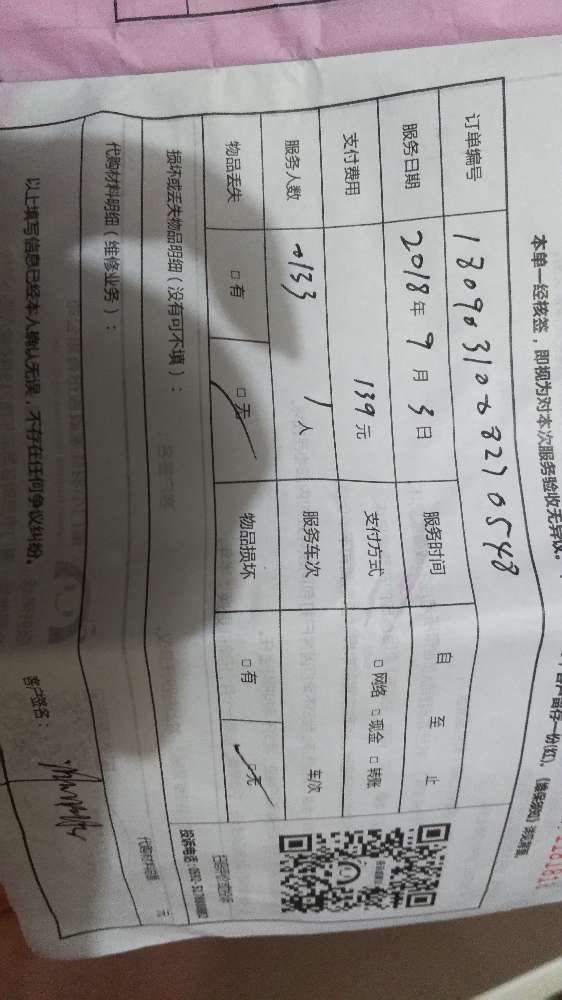 本单一经核签，即视为对本次服务验收无异议。
订单编号 1809031068270548
服务日期 2018年9月3日 服务时间 自 至 止
支付费用 139元 支付方式 □网络 □现金 □转账
服务人数 1人 服务车次 车次
物品丢失 □有 □无 物品损坏 □有 □无
损坏或丢失物品明细（没有可不填）：
代购材料明细（维修业务）：
元
以上填写信息已经本人确认无误，不存在任何争议纠纷。
客户签名：